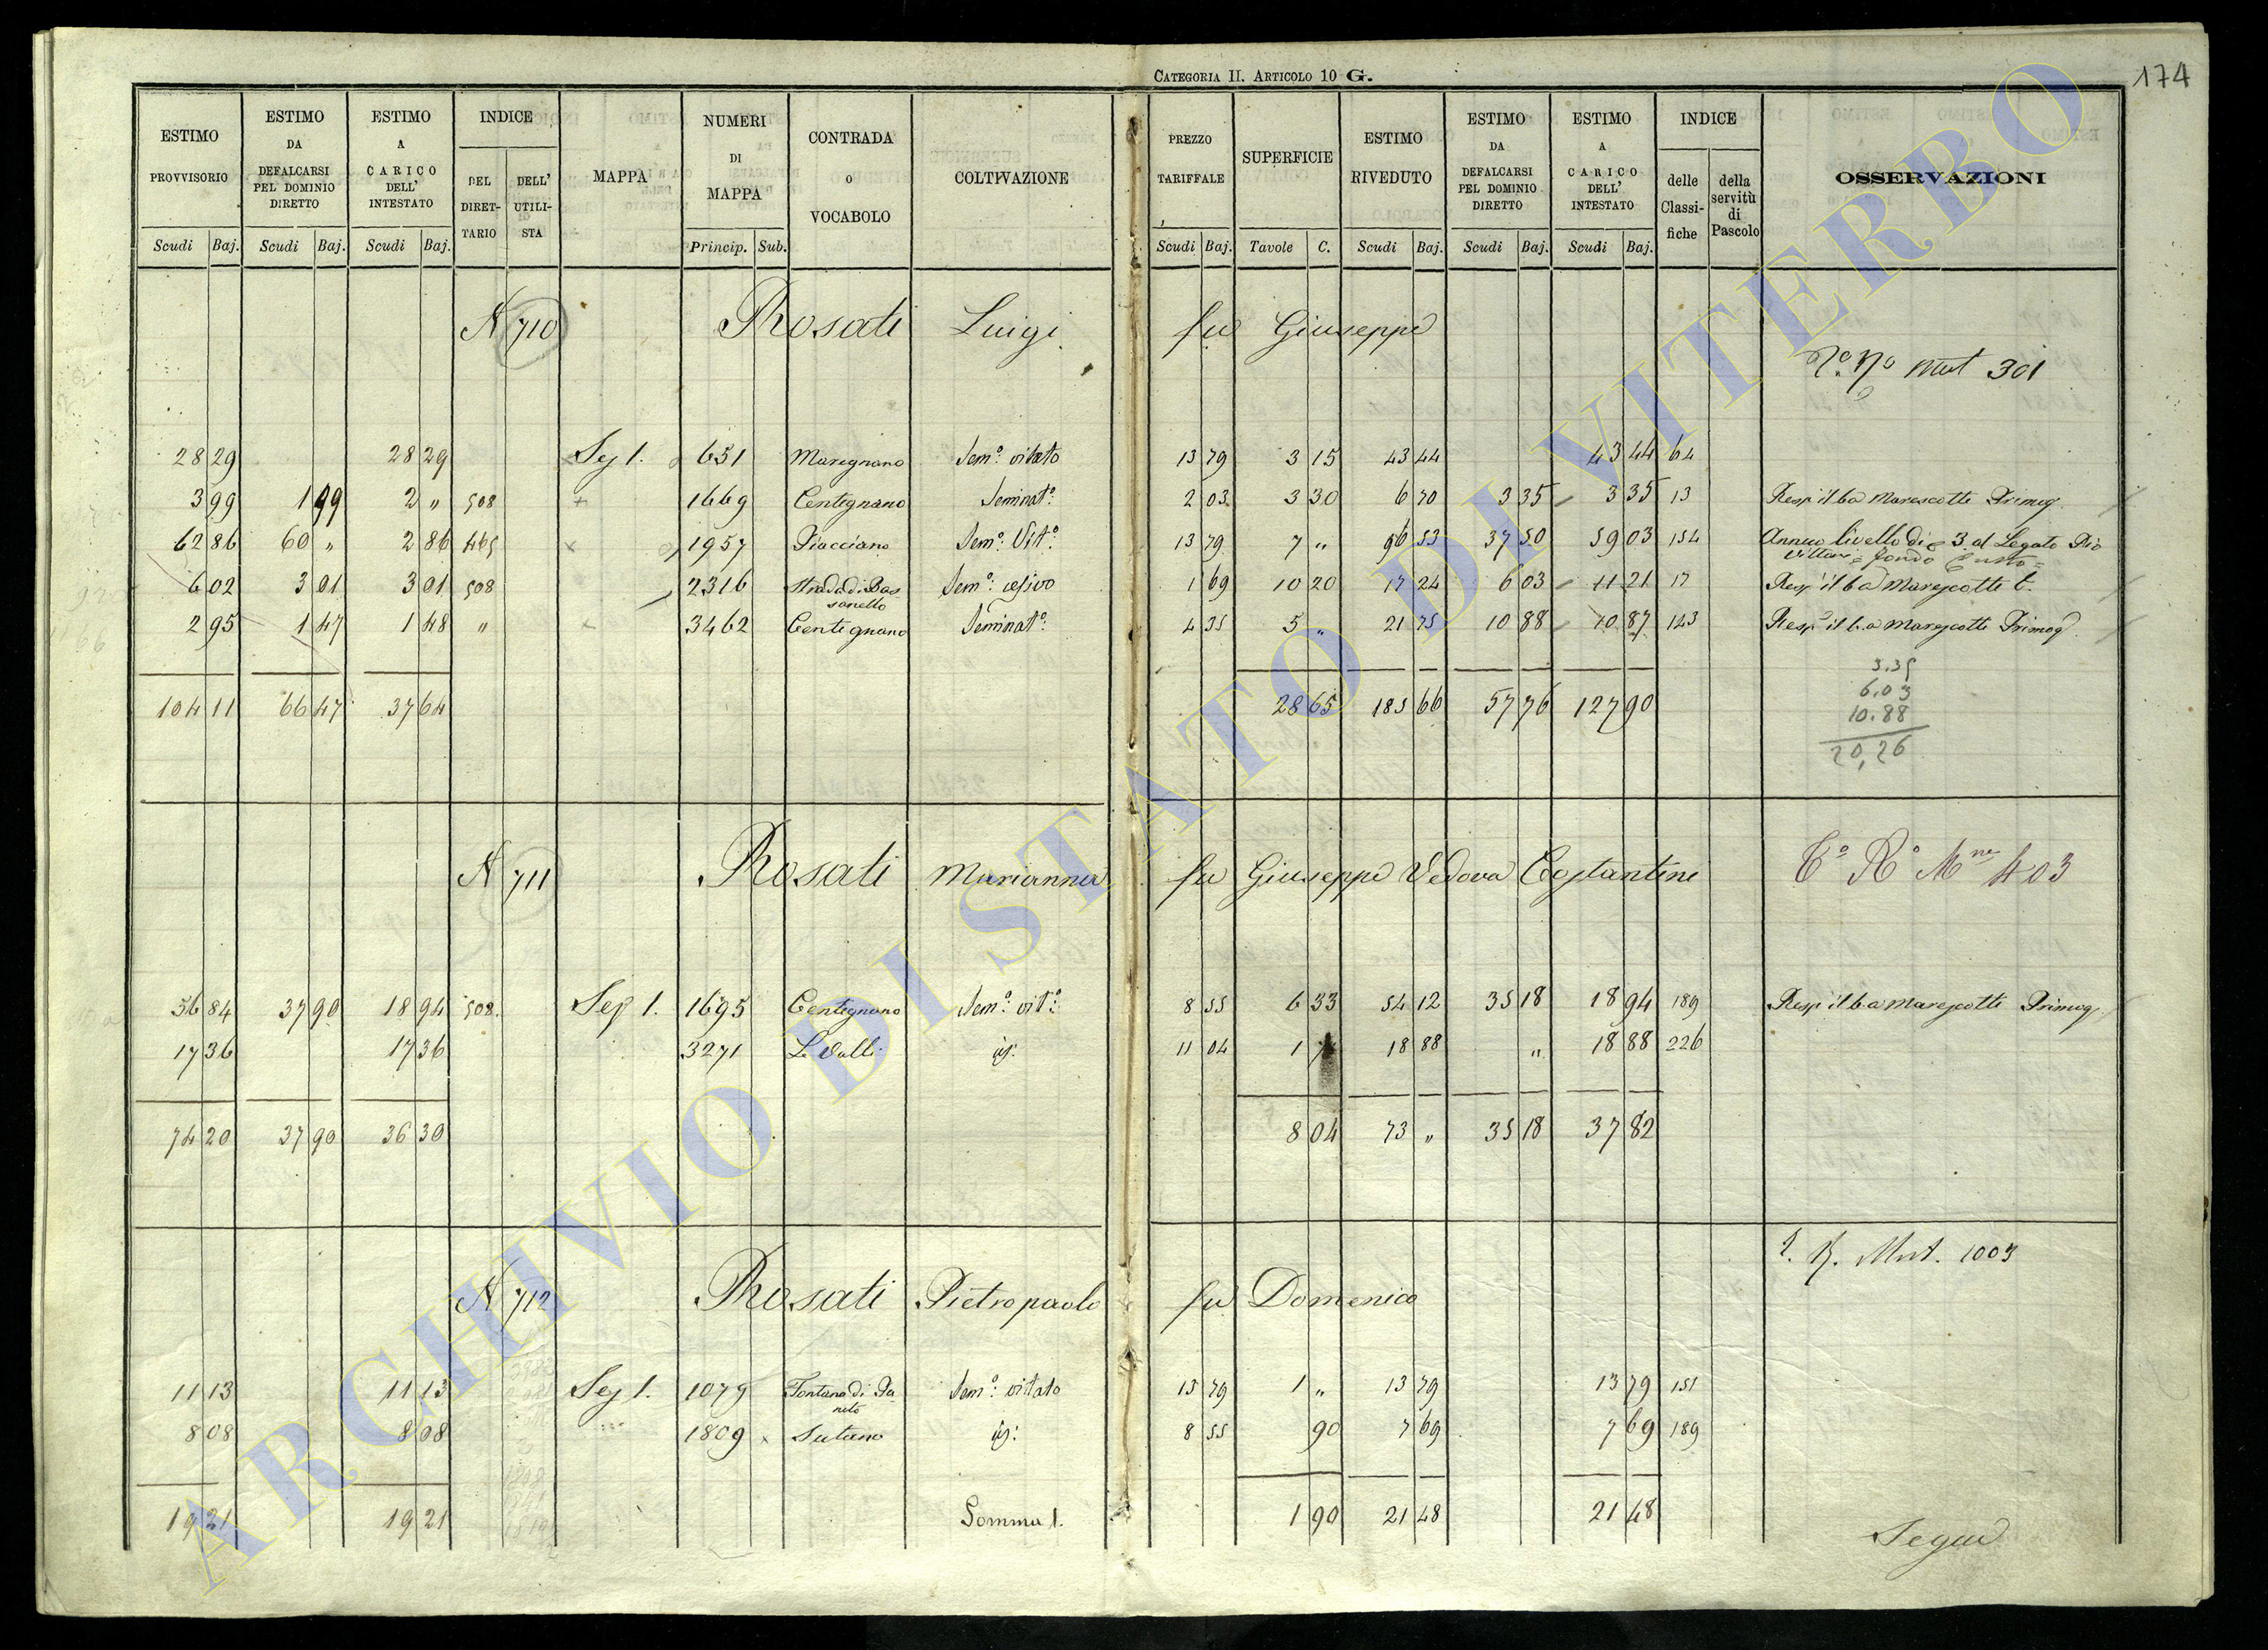 CATEGORIA II. ARTICOLO 10 G.
174
ESTIMO PROVVISORIO Scudi Baj. | ESTIMO DA DEFALCARSI PEL DOMINIO DIRETTO Scudi Baj. | ESTIMO A CARICO DELL' INTESTATO Scudi Baj. | INDICE DEL DIRET-TARIO | DELL' UTILI-STA | MAPPA | NUMERI DI MAPPA Princip. Sub. | CONTRADA O VOCABOLO | COLTIVAZIONE | PREZZO TARIFFALE Scudi Baj. | SUPERFICIE Tavole C. | ESTIMO RIVEDUTO Scudi Baj. | ESTIMO DA DEFALCARSI PEL DOMINIO DIRETTO Scudi Baj. | ESTIMO A CARICO DELL' INTESTATO Scudi Baj. | INDICE delle Classi-fiche | della servitù di Pascolo | OSSERVAZIONI
N 710 Rosati Luigi fu Giuseppe
Mut 301
28 29 28 29 Sez 1. 651 Maregnano Sem.º vitato 13 79 3 15 43 44 43 44 64
3 99 1 99 2 " 508 1669 Centignano Seminat.º 2 03 3 30 6 70 3 35 3 35 13 Resp il ba Marescotti Primog.
62 86 60 " 2 86 465 1957 Piacciano Sem.º Vit.º 13 79 7 " 96 53 37 50 59 03 154 Annuo livello di 3 al Legato Pio
6 02 3 01 3 01 508 2316 Strada di Bassanello Sem.º 1 69 10 20 17 24 6 03 11 21 17 Resp il ba Marescotti
2 95 1 47 1 48 " 3462 Centignano Seminat.º 4 35 5 " 21 75 10 88 10 87 123 Resp il ba Marescotti Primog.
104 11 66 47 37 64 28 65 185 66 57 76 127 90
3.35
6.03
10.88
20,26
N 711 Rosati Marianna fu Giuseppe Vedova Costantini
403
56 84 37 90 18 94 508. Sez 1. 1695 Centignano Sem.º vit.º 8 55 6 33 54 12 35 18 18 94 189 Resp il ba Marescotti Primog.
17 36 17 36 3271 Le Valli id: 11 04 1 18 88 " 18 88 226
74 20 37 90 36 30 8 04 73 " 35 18 37 82
Mut. 1003
N 712 Rosati Pietropaolo fu Domenico
11 13 11 13 Sez 1. 1079 Fontana di Sem.º vitato 13 79 1 " 13 79 13 79 151
8 08 8 08 1809 Sutano id: 8 55 90 7 69 7 69 189
19 21 19 21 Somma 1. 1 90 21 48 21 48
Segue
ARCHIVIO DI STATO DI VITERBO